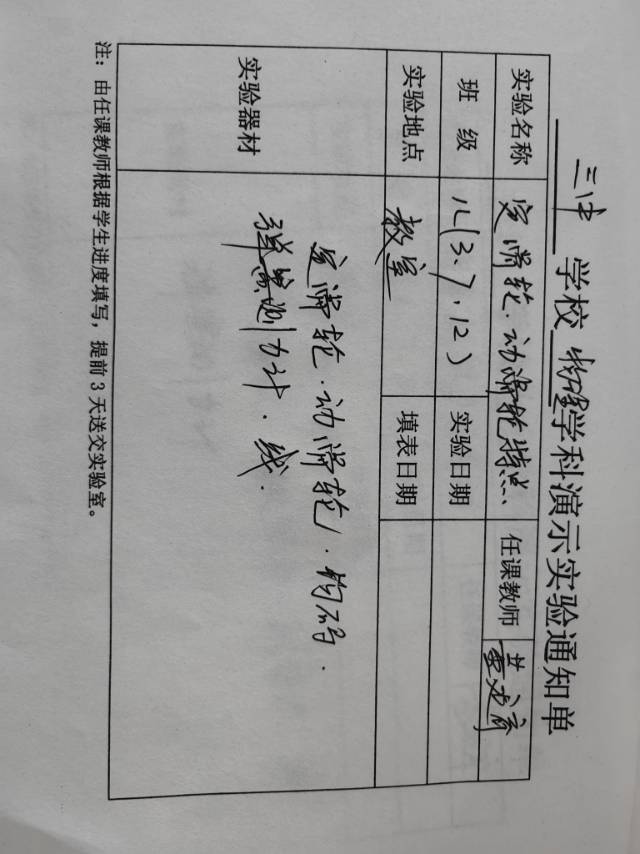 三中 学校 物理 学科演示实验通知单
实验名称 定滑轮.动滑轮特点 任课教师
班 级 八(3.7.12) 实验日期
实验地点 教室 填表日期
实验器材 定滑轮.动滑轮.钩码.
弹簧测力计.线.
注：由任课教师根据学生进度填写，提前3天送交实验室。